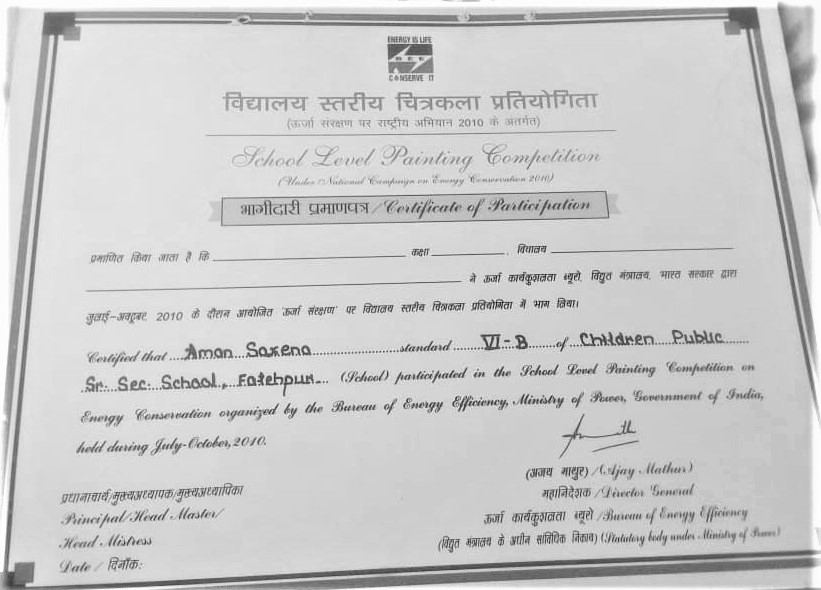 ENERGY IS LIFE
BEE
CONSERVE IT
विद्यालय स्तरीय चित्रकला प्रतियोगिता
(ऊर्जा संरक्षण पर राष्ट्रीय अभियान 2010 के अतर्गत)
School Level Painting Competition
(Under National Campaign on Energy Conservation 2010)
भागीदारी प्रमाणपत्र/Certificate of Participation
प्रमाणित किया जाता है कि ____ कक्षा ____, विद्यालय ____
____ ने ऊर्जा कार्यकुशलता ब्यूरो, विद्युत मंत्रालय, भारत सरकार द्वारा
जुलाई-अक्टूबर, 2010 के दौरान आयोजित 'ऊर्जा संरक्षण' पर विद्यालय स्तरीय चित्रकला प्रतियोगिता में भाग लिया।
Certified that Aman Saxena standard VI-B of Children Public
Sr. Sec. School, Fatehpur (School) participated in the School Level Painting Competition on
Energy Conservation organized by the Bureau of Energy Efficiency, Ministry of Power, Government of India,
held during July-October, 2010.
(अजय माथुर) / (Ajay Mathur)
महानिदेशक / Director General
ऊर्जा कार्यकुशलता ब्यूरो / Bureau of Energy Efficiency
(विद्युत मंत्रालय के अधीन सांविधिक निकाय) (Statutory body under Ministry of Power)
प्रधानाचार्य/मुख्यअध्यापक/मुख्यअध्यापिका
Principal/Head Master/
Head Mistress
Date / दिनाँक: